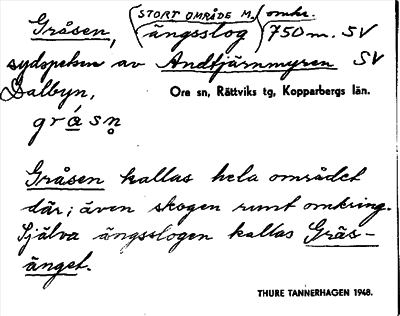 Gråsen, (STORT OMRÅDE M. ängsslog) omkr. 750 m. SV
sydspetsen av Andtjärnmyren SV
Dalbyn,
Ore sn, Rättviks tg, Kopparbergs län.
grásn̥
Gråsen kallas hela området
där; även skogen runt omkring.
Själva ängsslogen kallas Gräs-
änget.
THURE TANNERHAGEN 1948.